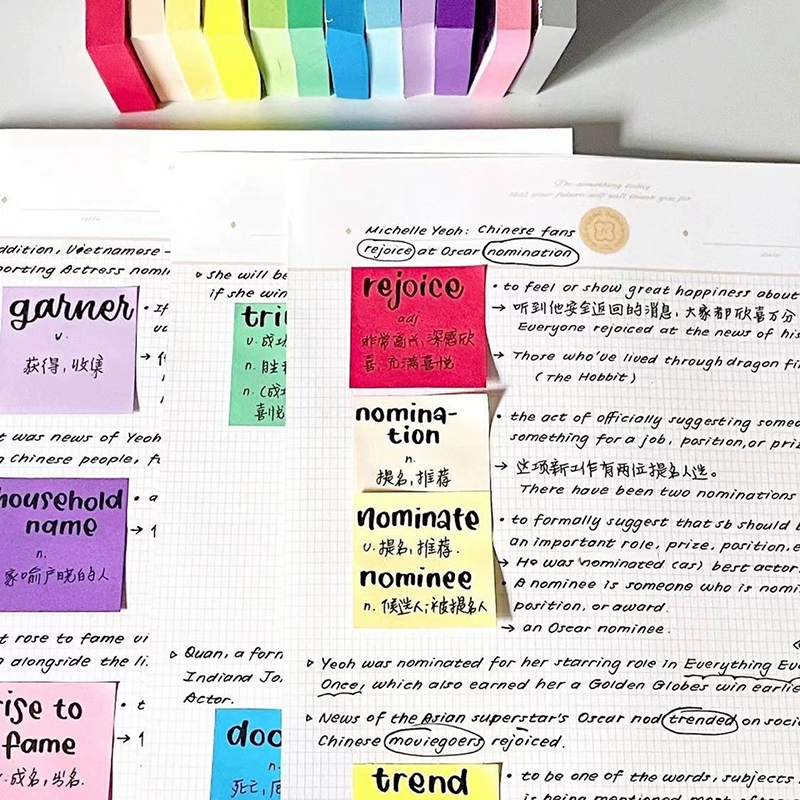 Do something today
that your future self will thank you for
date
date
Michelle Yeoh: Chinese fans
rejoice at Oscar nomination
rejoice
adj.
非常高兴,深感欣
喜;充满喜悦
• to feel or show great happiness about
→ 听到他安全返回的消息,大家都欣喜万分
Everyone rejoiced at the news of his
→ Those who've lived through dragon fi
(The Hobbit)
nomina-
tion
n.
提名,推荐
• the act of officially suggesting someo
something for a job, position, or priz
→ 这项新工作有两位提名人选。
There have been two nominations
nominate
v. 提名,推荐.
nominee
n. 候选人;被提名人
• to formally suggest that sb should b
an important role, prize, position, e
→ He was nominated (as) best actor
• A nominee is someone who is nomi
position, or award.
→ an Oscar nominee.
▷ Yeoh was nominated for her starring role in Everything Eve
Once, which also earned her a Golden Globes win earlie
▷ News of the Asian superstar's Oscar nod trended on soci
Chinese moviegoers rejoiced.
trend
• to be one of the words, subjects
is being mentioned most often
▷ She will be
if she win
triu
v. 成功
n. 胜利
n. (成功
喜悦
▷ Quan, a form
Indiana Jo
Actor.
doo
n.
死亡,厄
ddition, Vietnamese-
porting Actress nomi
garner
v.
获得,收集
• If
t was news of Yeoh
n Chinese people, f
household
name
n.
家喻户晓的人
• a
t rose to fame vi
alongside the li
rise to
fame
v. 成名,出名.
• t